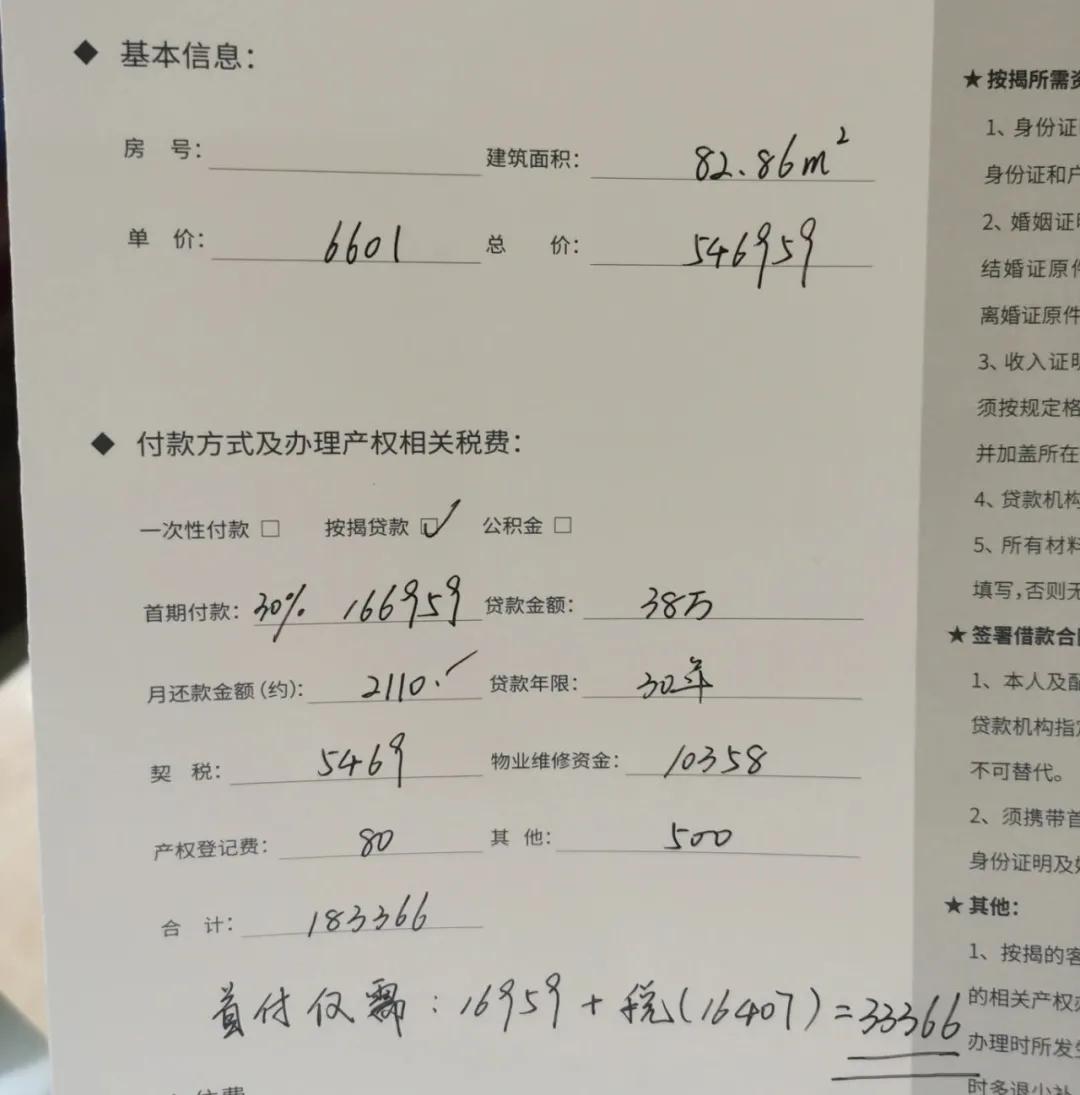 ◆ 基本信息：
房 号：
建筑面积： 82.86m²
单 价： 6601
总 价： 546959
◆ 付款方式及办理产权相关税费：
一次性付款 □ 按揭贷款 ☑ 公积金 □
首期付款： 30% 166959 贷款金额： 38万
月还款金额（约）： 2110. 贷款年限： 30年
契 税： 5469 物业维修资金： 10358
产权登记费： 80 其 他： 500
合 计： 183366
首付仅需：16959 + 税(16407) = 33366
★ 按揭所需
1、身份证
身份证和户
2、婚姻证
结婚证原件
离婚证原件
3、收入证
须按规定格
并加盖所在
4、贷款机构
5、所有材料
填写，否则无
★ 签署借款合
1、本人及配
贷款机构指
不可替代。
2、须携带首
身份证明及
★ 其他：
1、按揭的客
的相关产权
办理时所发生
时多退少补